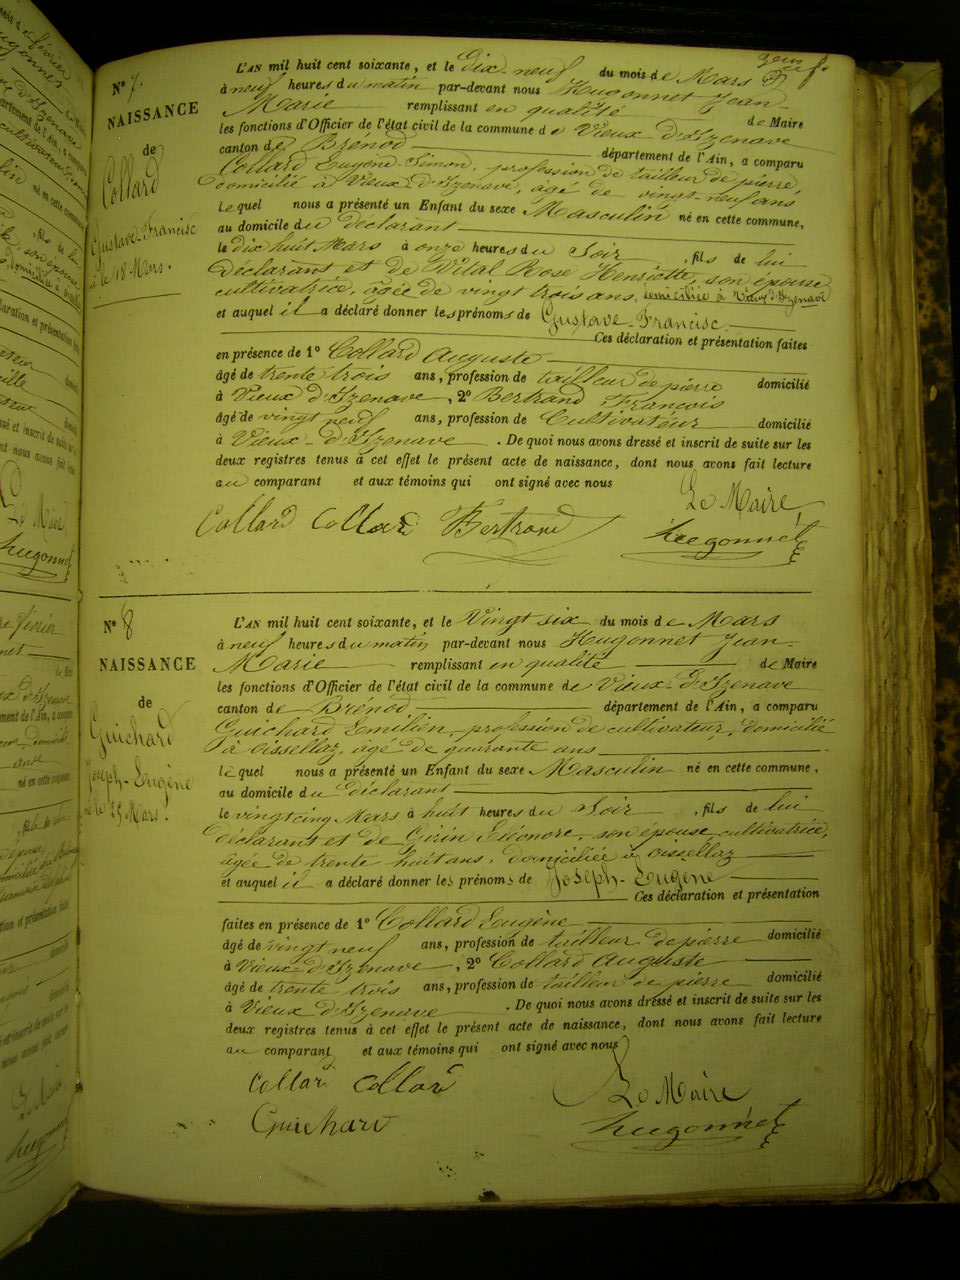 3eme f.
N° 7.
NAISSANCE
de
Collard
Gustave-Francisc
né le 18 Mars.
L'AN mil huit cent soixante, et le Dix neuf du mois de Mars
à neuf heures du matin par-devant nous Hugonnet Jean-
Marie remplissant en qualité de Maire
les fonctions d'Officier de l'état civil de la commune de Vieux-d'Izenave
canton de Brénod département de l'Ain, a comparu
Collard Eugène-Simon, profession de tailleur de pierre,
domicilié à Vieux-d'Izenave, âgé de vingt-neuf ans
Lequel nous a présenté un Enfant du sexe Masculin né en cette commune,
au domicile du déclarant
le dix huit Mars à onze heures du Soir, fils de lui
déclarant et de Vital Rose Henriette, son épouse
cultivatrice, âgée de vingt trois ans, domiciliée à Vieux d'Izenave
et auquel il a déclaré donner les prénoms de Gustave-Francisc
Ces déclaration et présentation faites
en présence de 1° Collard Auguste
âgé de trente trois ans, profession de tailleur de pierre domicilié
à Vieux d'Izenave, 2° Bertrand François
âgé de vingt neuf ans, profession de Cultivateur domicilié
à Vieux-d'Izenave. De quoi nous avons dressé et inscrit de suite sur les
deux registres tenus à cet effet le présent acte de naissance, dont nous avons fait lecture
au comparant et aux témoins qui ont signé avec nous
Le Maire,
Collard Collard Bertrand Hugonnet
N° 8
NAISSANCE
de
Guichard
Joseph-Eugène
né le 25 Mars.
L'AN mil huit cent soixante, et le Vingt six du mois de Mars
à neuf heures du matin par-devant nous Hugonnet Jean-
Marie remplissant en qualité de Maire
les fonctions d'Officier de l'état civil de la commune de Vieux-d'Izenave
canton de Brénod département de l'Ain, a comparu
Guichard Emilien, profession de cultivateur, domicilié
à Oissellaz, âgé de quarante ans
lequel nous a présenté un Enfant du sexe Masculin né en cette commune,
au domicile du déclarant
le vingt cinq Mars à huit heures du Soir, fils de lui
déclarant et de Girin Eléonore, son épouse cultivatrice,
âgée de trente huit ans, domiciliée à Oissellaz
et auquel il a déclaré donner les prénoms de Joseph-Eugène
Ces déclaration et présentation
faites en présence de 1° Collard Eugène
âgé de vingt neuf ans, profession de tailleur de pierre domicilié
à Vieux-d'Izenave, 2° Collard Auguste
âgé de trente trois ans, profession de tailleur de pierre domicilié
à Vieux d'Izenave. De quoi nous avons dressé et inscrit de suite sur les
deux registres tenus à cet effet le présent acte de naissance, dont nous avons fait lecture
au comparant et aux témoins qui ont signé avec nous
Collard Collard Le Maire
Guichard Hugonnet